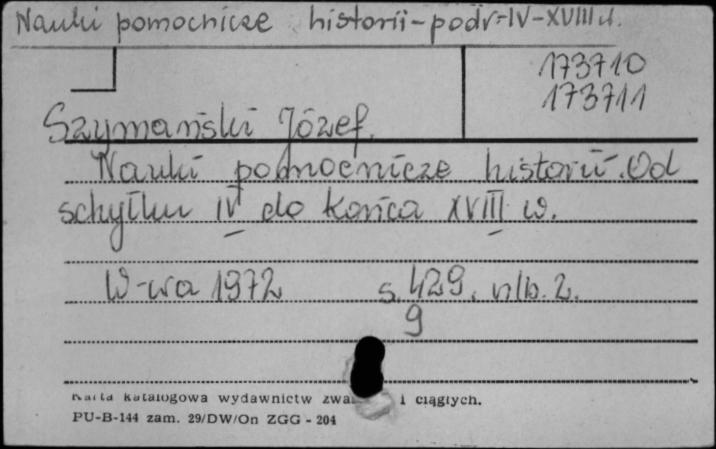 Nauki pomocnicze historii-podr-IV-XVIII w.
173710
173711
Szymański Józef.
Nauki pomocnicze historii. Od
schyłku IV do końca XVIII w.
W-wa 1972 s. 429, nlb. 2.
9
Karta katalogowa wydawnictw i ciągłych.
PU-B-144 zam. 29/DW/On ZGG - 204